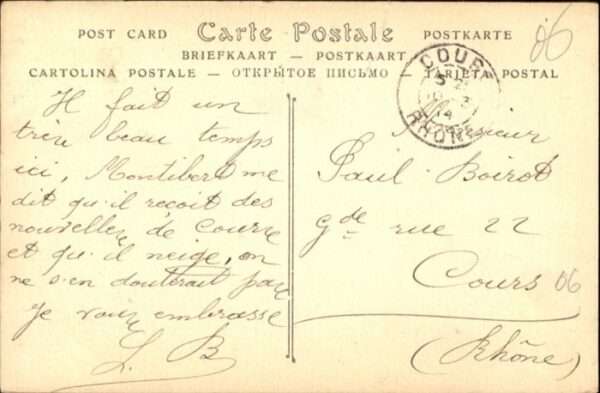 POST CARD Carte Postale POSTKARTE
BRIEFKAART — POSTKAART
CARTOLINA POSTALE — ОТКРЫТОЕ ПИСЬМО — TARJETA POSTAL
06
COURS
14
RHÔNE
Il fait un
très beau temps
ici, Montibert me
dit qu'il reçoit des
nouvelles de Cours
et qu'il neige, on
ne s'en douterait pas
Je vous embrasse
L. B
Monsieur
Paul Boirot
Gde rue 22
Cours
06
(Rhône)